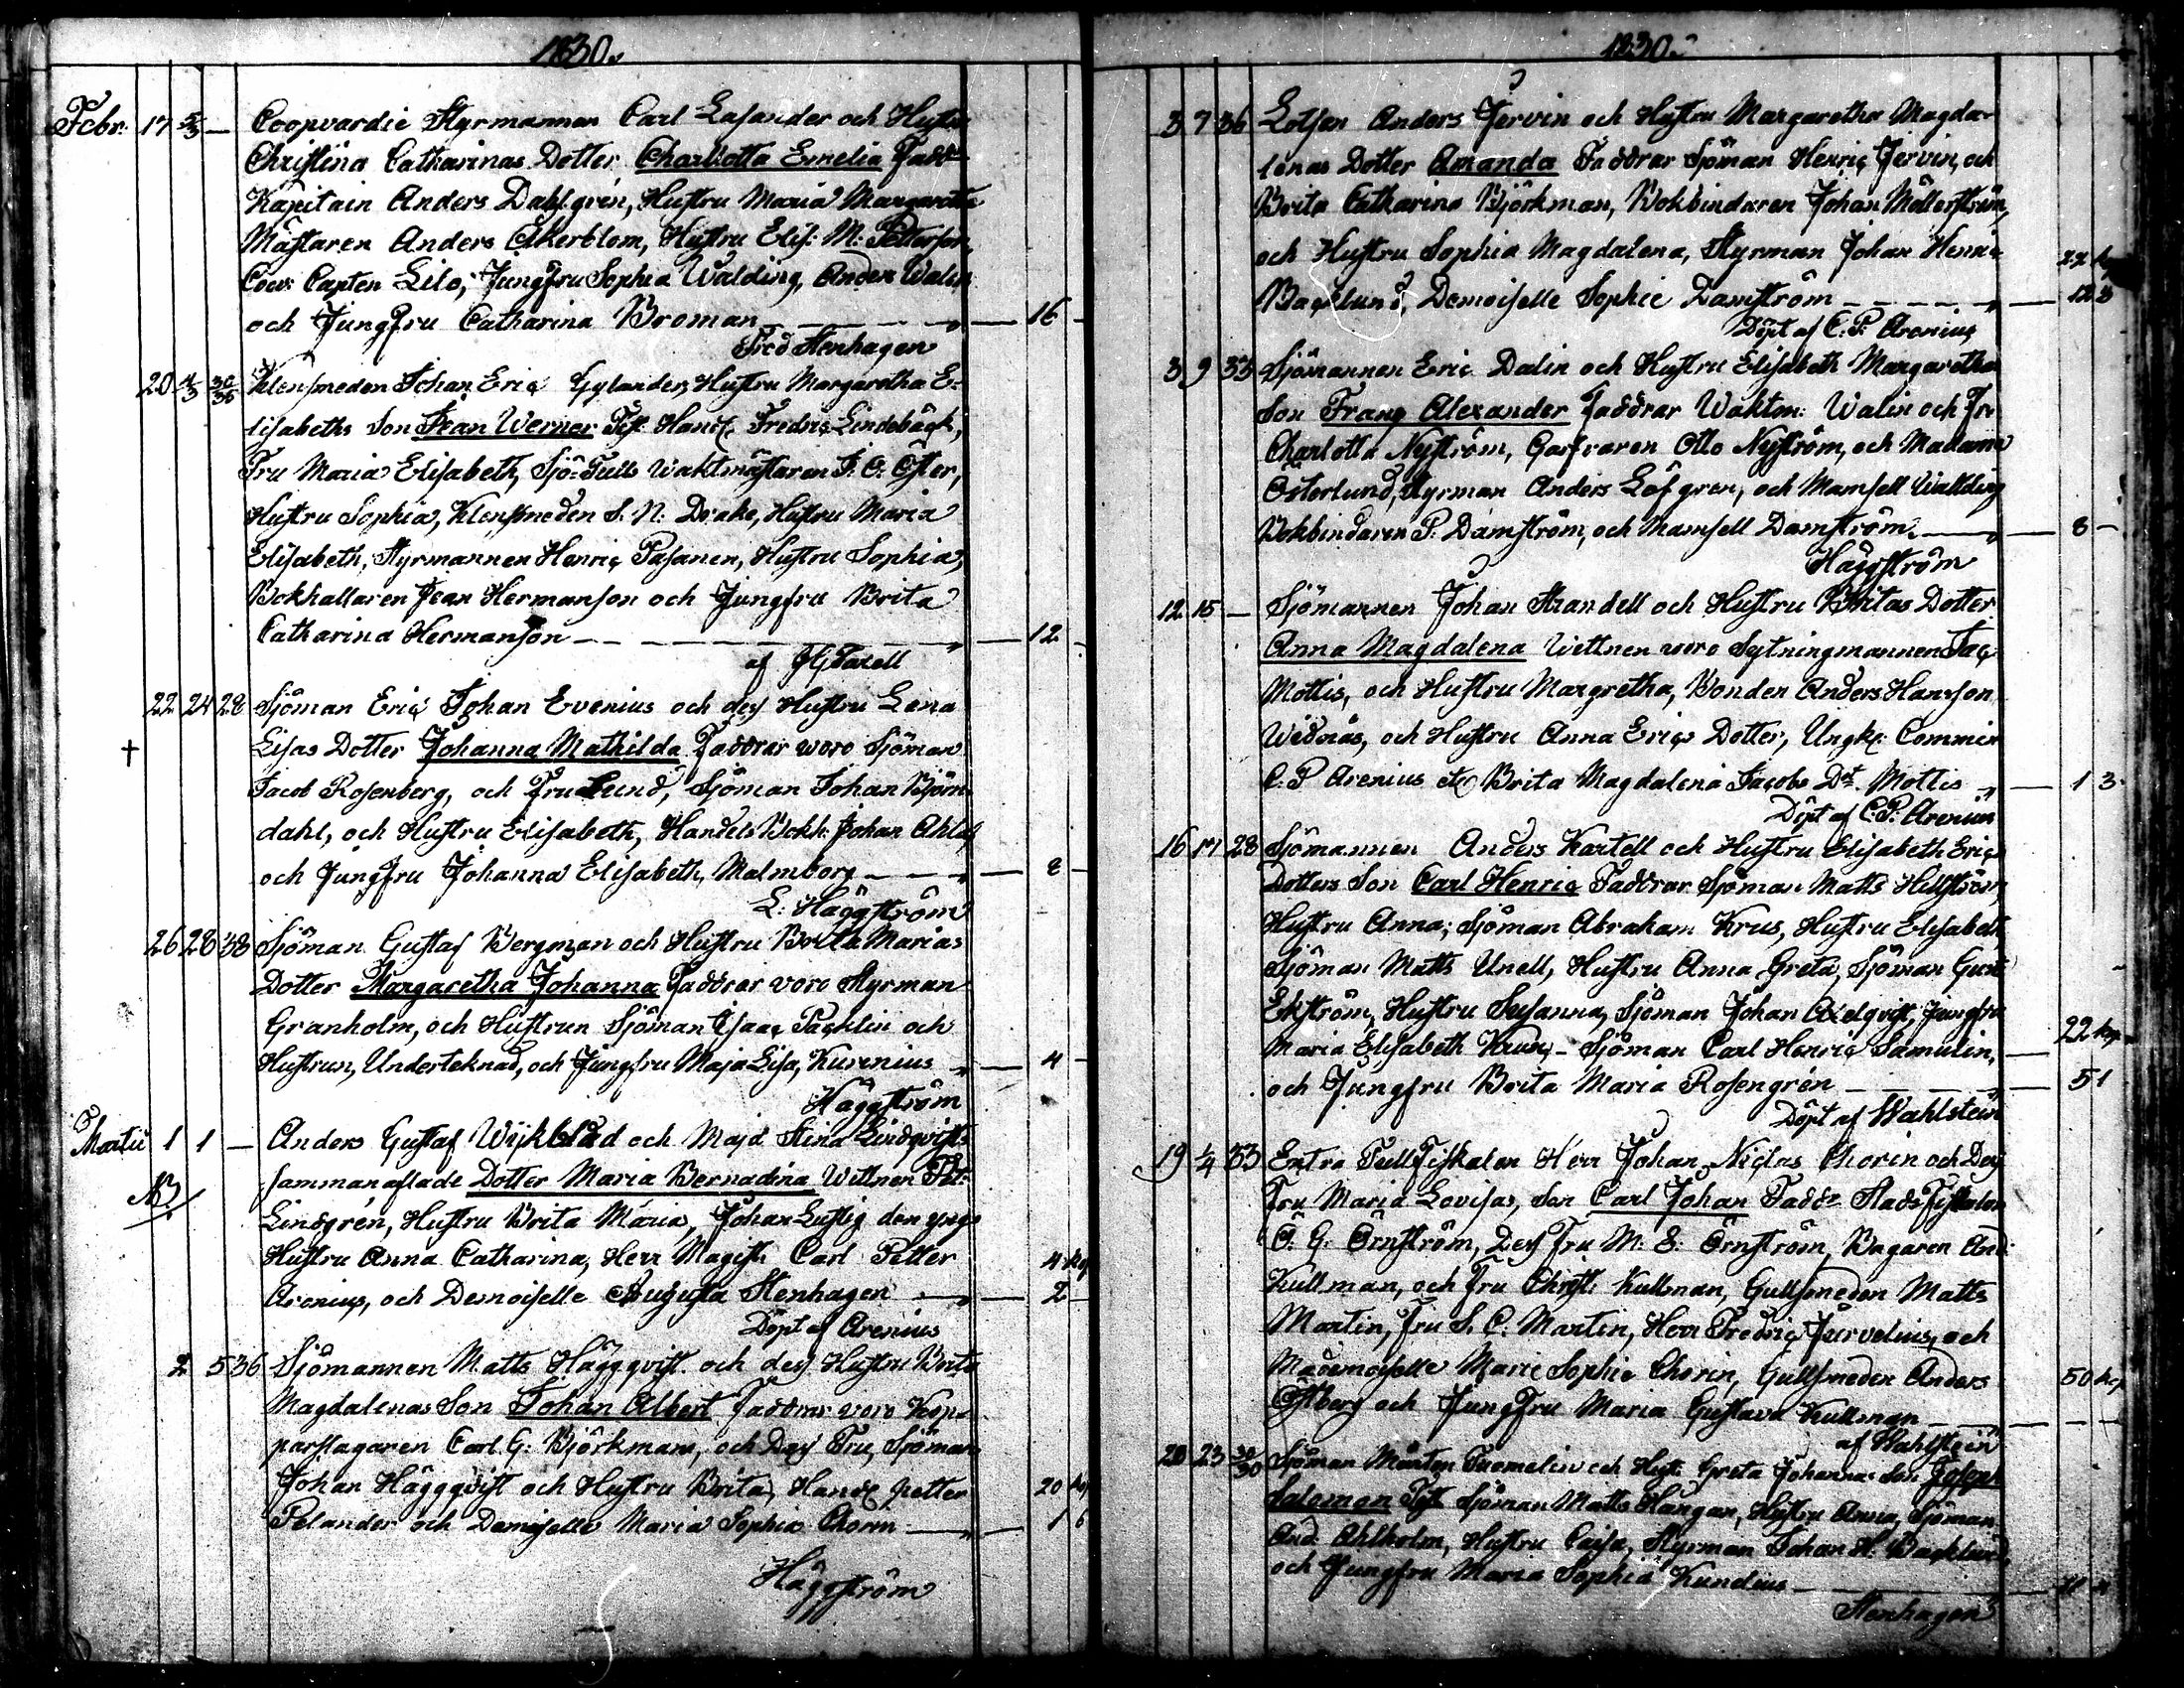 1830.
Febr. 17 5/3 — Coopvardie Styrmannen Carl Lasander och Hustru
Christina Catharinas Dotter Charlotta Emelia Fadd:
Kapitain Anders Dahlgrén, Hustru Maria Margaretha
Mästaren Anders Åkerblom, Hustru Elis: M: Petterson,
Capten Lilo, Jungfru Sophia Walding, Anders Walin
och Jungfru Catharina Broman — 16 —
Stenhagen
20 4/3 30/36 Klensmeden Johan Eric Gylander, Hustru Margaretha E-
lisabeths Son Jean Werner Test. Handl. Fredric Lindebäck,
Fru Maria Elisabeth, Sjö-Tulls Waktmästaren J. O. Öster,
Hustru Sophia, Klensmeden S. N. Drake, Hustru Maria
Elisabeth, Styrmannen Henric Pasanen, Hustru Sophia,
Bokhallaren Jean Hermanson och Jungfru Brita
Catharina Hermanson — 12 —
af
22 24 28 Sjöman Eric Johan Evenius och dess Hustru Lena
† Lisas Dotter Johanna Mathilda Faddrar woro Sjöman
Jacob Rosenberg, och Fru Lund, Sjöman Johan Björn-
dahl, och Hustru Elisabeth, Handels Bokh: Johan
och Jungfru Johanna Elisabeth Malmborg — 8 —
L: Häggström
26 28 38 Sjöman Gustaf Bergman och Hustru Brita Marias
Dotter Margaretha Johanna Faddrar voro Styrman
Granholm, och Hustrun Sjöman Isaac Packlin och
Hustrun, Underteknad, och Jungfru Maja Lisa, Kurenius — 4 —
Häggström
Martii 1 1 — Anders Gustaf Wijkblad och Maja Stina Lindqvists
NB sammanaflade Dotter Maria Bernadina Wittnen Pet:
Lindgrén, Hustru Brita Maria, Johan Lustig den yngr
Hustru Anna Catharina, Herr Magist: Carl Petter 4 kop
Arenius, och Demoiselle Augusta Stenhagen — 2 —
Döpt af Arenius
2 5 36 Sjömannen Matts Häggqvist och dess Hustru Brita
Magdalenas Son Johan Albert Faddrar voro Kop-
parslagaren Carl G: Björkman, och Dess Fru, Sjöman
Johan Häggqvist och Hustru Brita, Handl petter 20 kop
Pelander och Demoiselle Maria Sophia Chorin — 1 6
Häggström
1830.
3 7 36 Lotsen Anders Jervin och Hustru Margaretha Magda-
lenas Dotter Amanda Faddrar Sjöman Henric Jervin, och
Brita Catharina Björkman, Bokbindaren Johan Möllerström,
och Hustru Sophia Magdalena, Styrman Johan Henric
Backlund, Demoiselle Sophie Damström — 12 8
Döpt af C. P. Arenius
3 9 35 Sjömannen Eric Dalin och Hustru Elisabeth Margaretha
Son Frans Alexander Faddrar Waktm: Walin och Fru
Charlotta Nyström, Garfvaren Otto Nyström, och Madame
Österlund, Styrman Anders Löfgren, och Mamsell Wallding
Bokbindaren P. Damström, och Mamsell Damström — 8 —
Häggström
12 15 — Sjömannen Johan Strandell och Hustru Britas Dotter
Anna Magdalena Wittnen woro Sytningmannen Jac
Mottis, och Hustru Margretha, Bonden Anders Hansson
Widnäs, och Hustru Anna Erics Dotter, Ungk: Commin
C. P Arenius och Brita Magdalena Jacobs Dr. Mottis — 1 3
Döpt af C. P. Arenius
16 17 28 Sjömannen Anders Kartell och Hustru Elisabeth Erics
Dotters Son Carl Henric Faddrar Sjöman Matts Hellström,
Hustru Anna, Sjöman Abraham Krus, Hustru Elisabeth
Sjöman Matts Unell, Hustru Anna Greta, Sjöman Gust
Ekström, Hustru Susanna, Sjöman Johan Axelqvist, Jungfru
Maria Elisabeth Krus, — Sjöman Carl Henric Samulin, 22 kop
och Jungfru Brita Maria Rosengrén — 5 1
Döpt af Wahlstein
19 1/4 33 Extra TullFiskalen Herr Johan Niclas Chorin och Dess
Fru Maria Lovisas, Son Carl Johan Faddr. StadsFiskalen
O. G. Örnström, Dess Fru M: E: Örnström, Bagaren And:
Kullman, och Fru Christ: Kullman, Gullsmeden Matts
Martin, Fru S. C. Martin, Herr Fredric Jurvelius, och
Mademoiselle Marie Sophie Chorin, Gullsmeden Anders 50 kop
Östberg och Jungfru Maria Gustava Kullman —
af Wahlstein
20 23 Sjöman Mårten Tuomelin och Hust: Greta Johannas Son Joseph
Salomon Test Sjöman Matts Hangar, Hustru Anna, Sjöman
And. Ahlholm, Hustru Caisa, Styrman Johan H. Backlund,
och Jungfru Maria Sophia Kundius —
Stenhagen